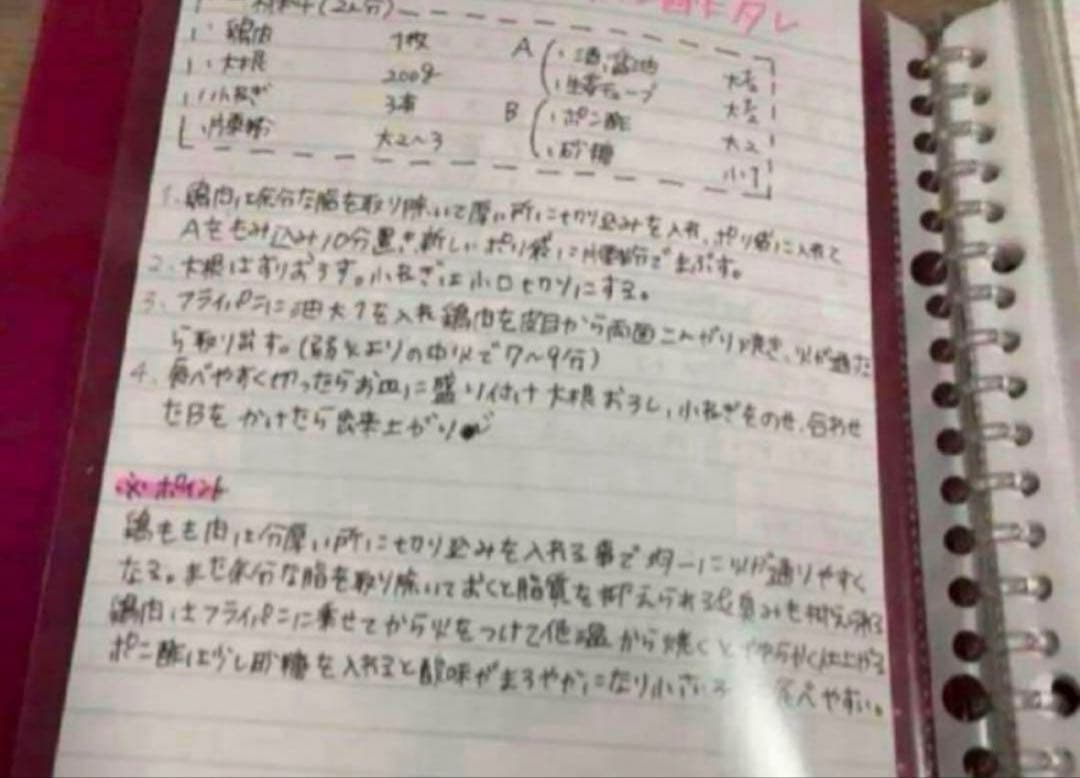 材料(2人分)
タレ
・鶏肉 1枚
・大根 200g
・小ねぎ 3本
・片栗粉 大2〜3
A
・生姜チューブ
B ・ポン酢 大2
・砂糖 小1
1. 鶏肉は余分な脂を取り除いて厚い所に切り込みを入れ、ポリ袋に入れて
Aをもみ込み10分置き新しいポリ袋に片栗粉でまぶす。
2. 大根はすりおろす。小ねぎは小口切りにする。
3. フライパンに油大1を入れ鶏肉を皮目から両面こんがり焼き、火が通った
ら取り出す。(弱火よりの中火で7〜9分)
4. 食べやすく切ったらお皿に盛り付け大根おろし、小ねぎをのせ、合わせ
たBをかけたら出来上がり
※ポイント
鶏もも肉は分厚い所に切り込みを入れる事で均一に火が通りやすく
なる。また余分な脂を取り除いておくと脂質を抑えられる臭みも抑えられる
鶏肉はフライパンに乗せてから火をつけて低温から焼くとやわらかく仕上がる
ポン酢は少し砂糖を入れると酸味がまろやかになり小さい 食べやすい。